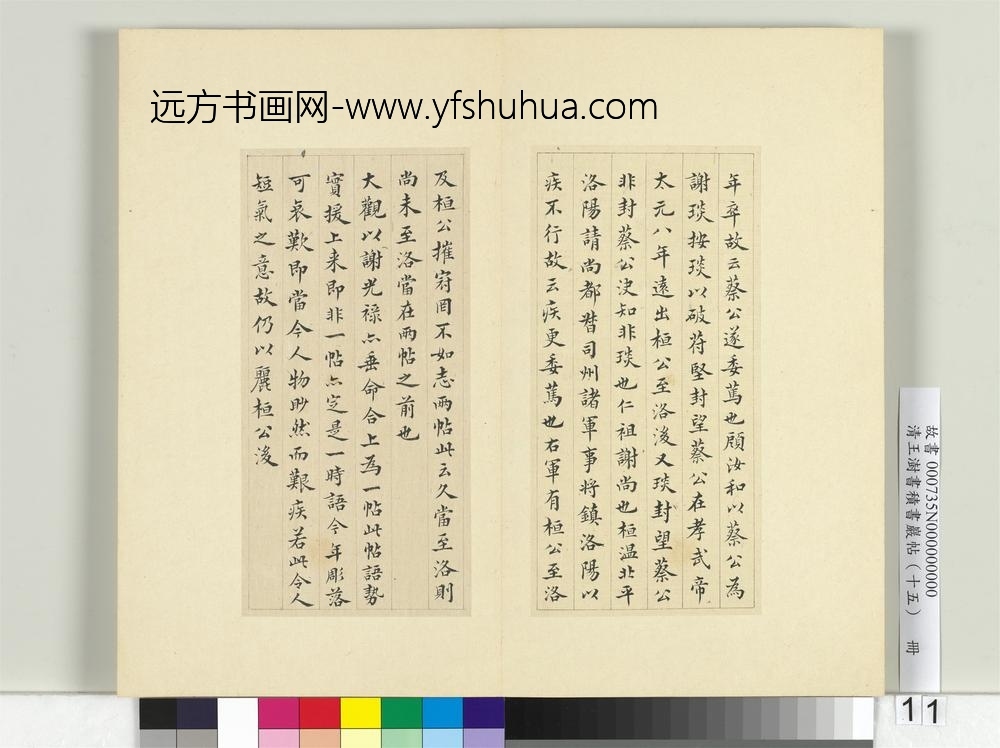 远方书画网-www.yfshuhua.com
年卒故云蔡公遂委篤也顧汝和以蔡公為
謝琰按琰以破苻堅封望蔡公在孝武帝
太元八年遠出桓公至洛後又琰封望蔡公
非封蔡公決知非琰也仁祖謝尚也桓温北平
洛陽請尚都督司州諸軍事将鎮洛陽以
疾不行故云疾更委篤也右軍有桓公至洛
及桓公摧寇罔不如志兩帖此云久當至洛則
尚未至洛當在兩帖之前也
大觀以謝光禄亦垂命合上為一帖此帖語勢
實援上来即非一帖亦定是一時語今年彫落
可哀歎即當今人物眇然而艱疾若此令人
短氣之意故仍以麗桓公後
故書 000735N000000000
清王澍書積書巖帖（十五） 冊
11